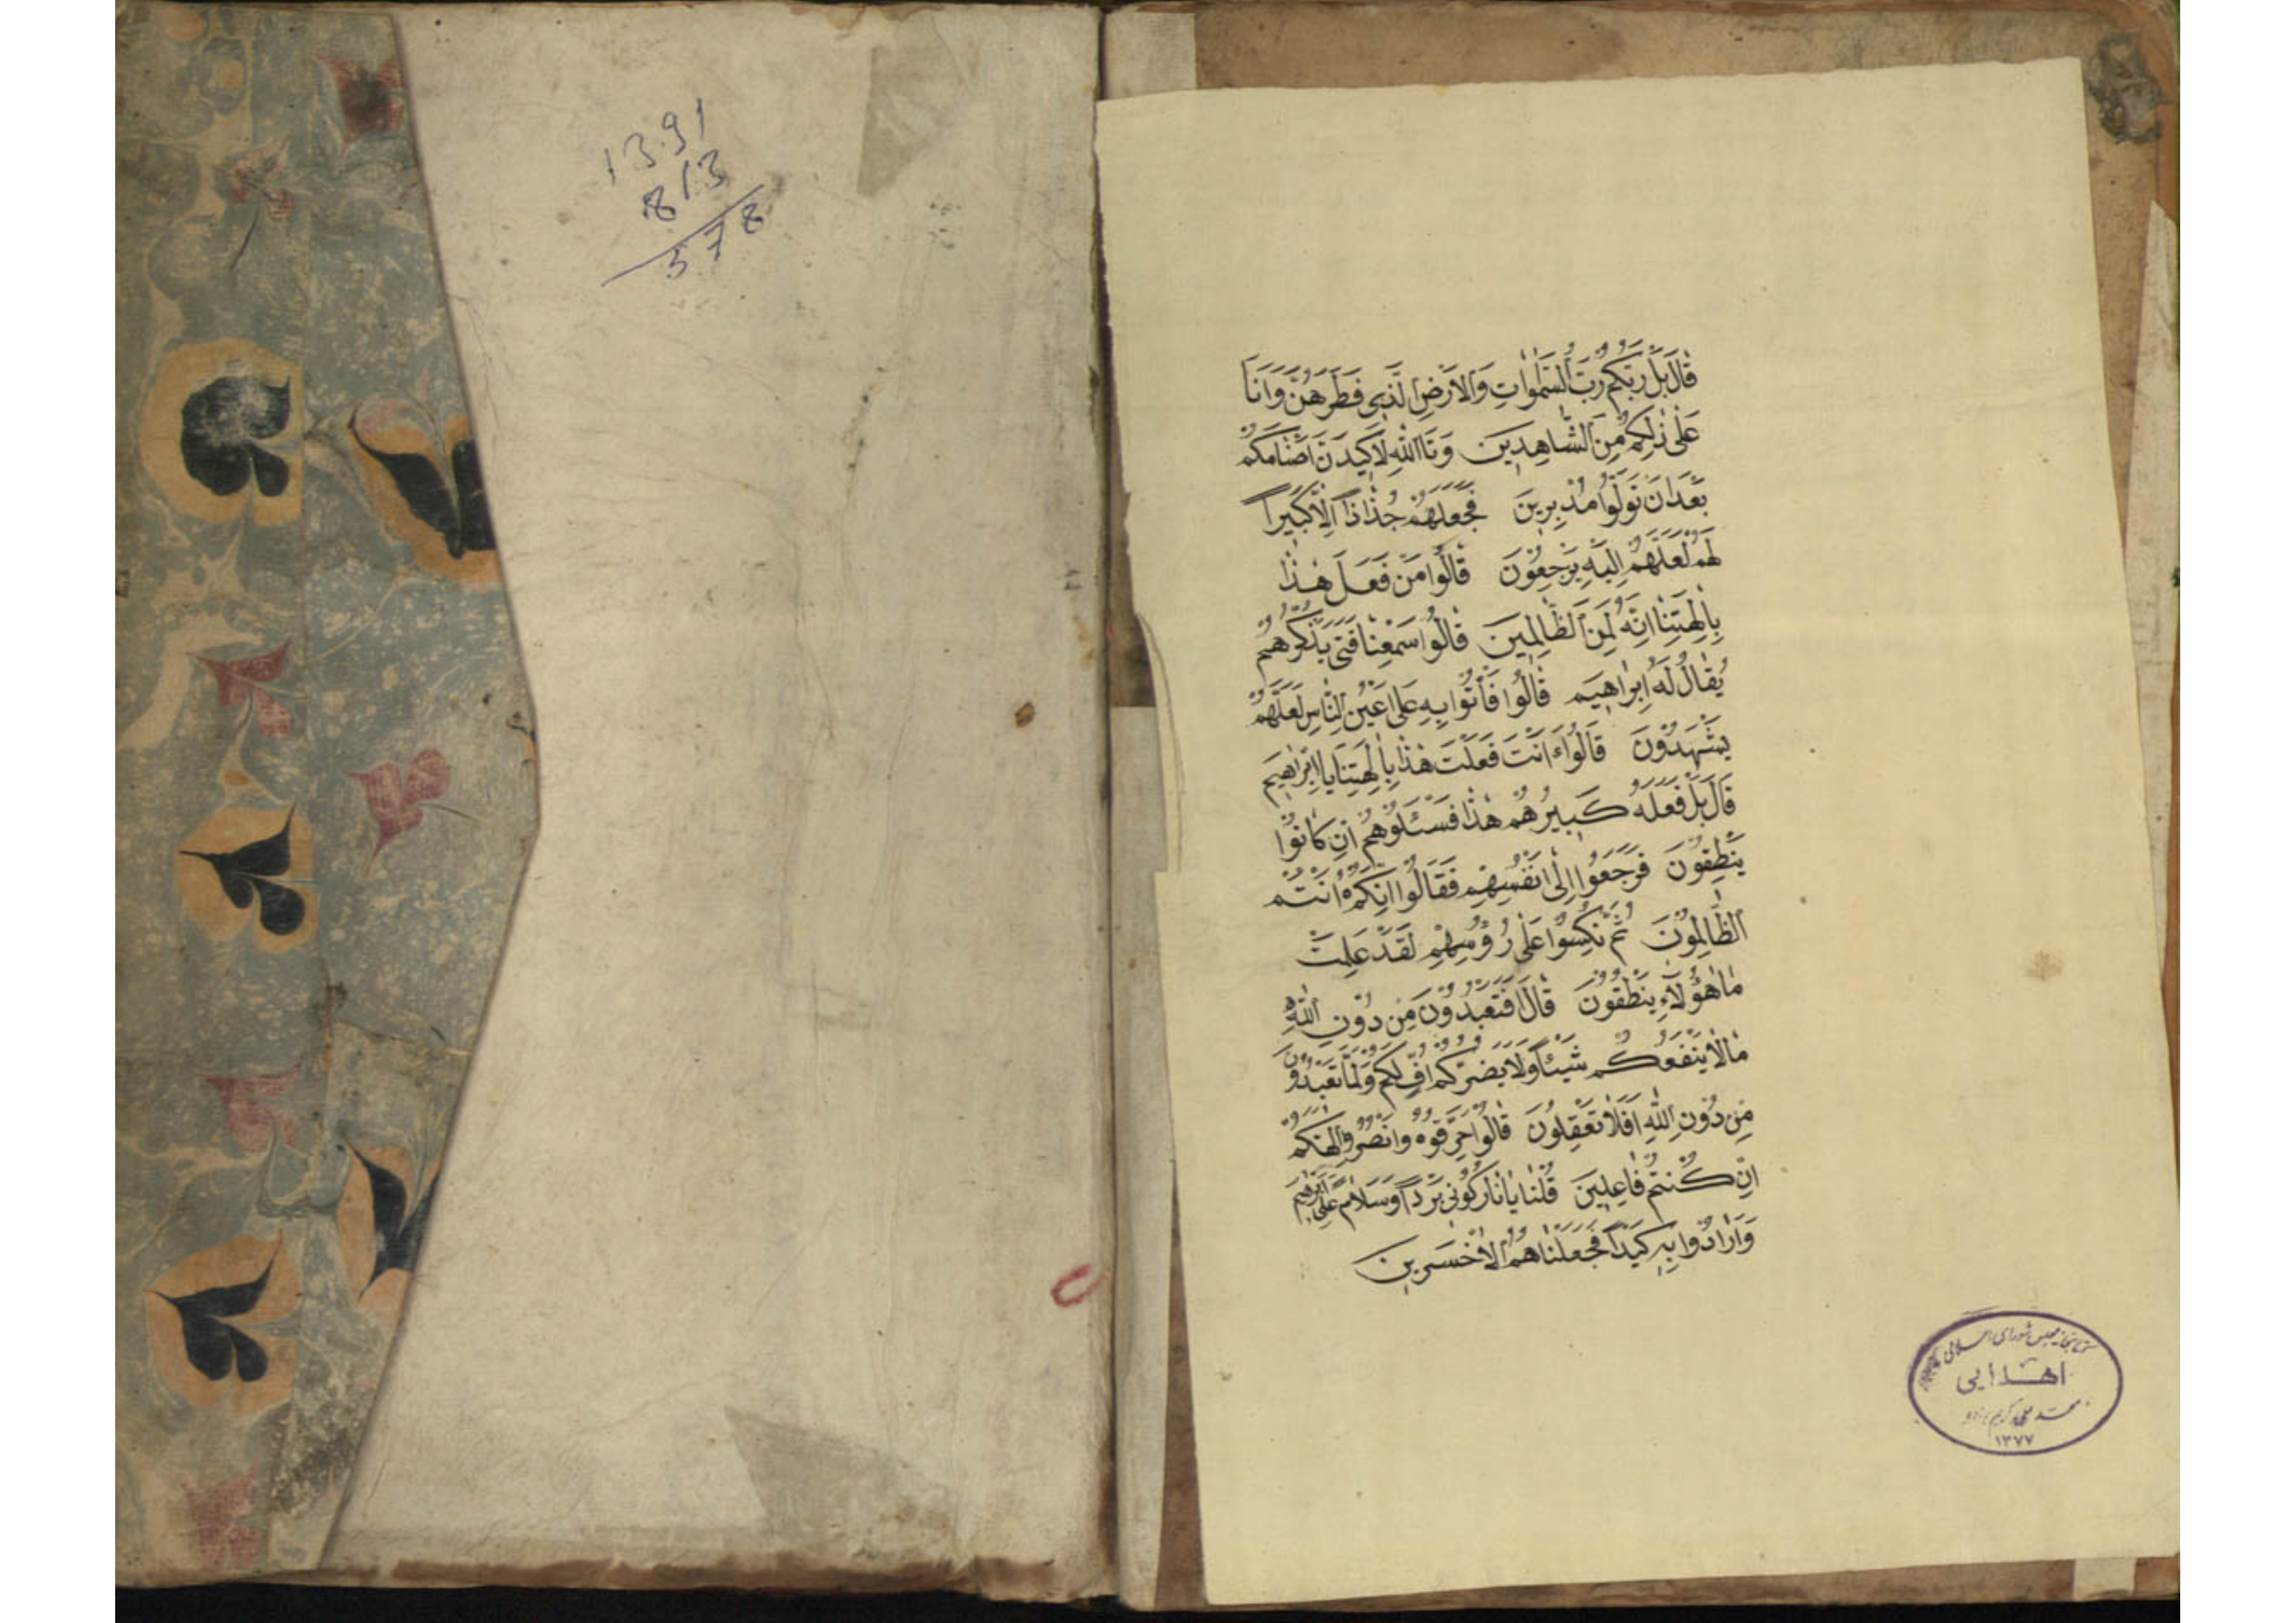 13.91
813
578
قَالَ بَلْ رَبُّكُمْ رَبُّ السَّمٰوَاتِ وَالْاَرْضِ الَّذِي فَطَرَهُنَّ وَاَنَا
عَلٰى ذٰلِكُمْ مِنَ الشَّاهِدِينَ وَتَااللّٰهِ لَاَكِيدَنَّ اَصْنَامَكُمْ
بَعْدَ اَنْ تُوَلُّوا مُدْبِرِينَ فَجَعَلَهُمْ جُذَاذًا اِلَّا كَبِيرًا
لَهُمْ لَعَلَّهُمْ اِلَيْهِ يَرْجِعُونَ قَالُوا مَنْ فَعَلَ هٰذَا
بِاٰلِهَتِنَا اِنَّهُ لَمِنَ الظَّالِمِينَ قَالُوا سَمِعْنَا فَتًى يَذْكُرُهُمْ
يُقَالُ لَهُ اِبْرَاهِيمَ قَالُوا فَأْتُوا بِهِ عَلٰى اَعْيُنِ النَّاسِ لَعَلَّهُمْ
يَشْهَدُونَ قَالُوا ءَاَنْتَ فَعَلْتَ هٰذَا بِاٰلِهَتِنَا يَا اِبْرٰهِيمَ
قَالَ بَلْ فَعَلَهُ كَبِيرُهُمْ هٰذَا فَسْئَلُوهُمْ اِنْ كَانُوا
يَنْطِقُونَ فَرَجَعُوا اِلٰى اَنْفُسِهِمْ فَقَالُوا اِنَّكُمْ اَنْتُمْ
الظَّالِمُونَ ثُمَّ نُكِسُوا عَلٰى رُؤُسِهِمْ لَقَدْ عَلِمْتَ
مَا هٰؤُلَاءِ يَنْطِقُونَ قَالَ اَفَتَعْبُدُونَ مِنْ دُونِ اللّٰهِ
مَا لَا يَنْفَعُكُمْ شَيْئًا وَلَا يَضُرُّكُمْ اُفٍّ لَكُمْ وَلِمَا تَعْبُدُونَ
مِنْ دُونِ اللّٰهِ اَفَلَا تَعْقِلُونَ قَالُوا حَرِّقُوهُ وَانْصُرُوا اٰلِهَتَكُمْ
اِنْ كُنْتُمْ فَاعِلِينَ قُلْنَا يَا نَارُ كُونِي بَرْدًا وَسَلَامًا عَلٰى اِبْرٰهِيمَ
وَاَرَادُوا بِهِ كَيْدًا فَجَعَلْنَاهُمُ الْاَخْسَرِينَ
كتابخانه مجلس شورای اسلامی
اهدایی
۱۳۷۷